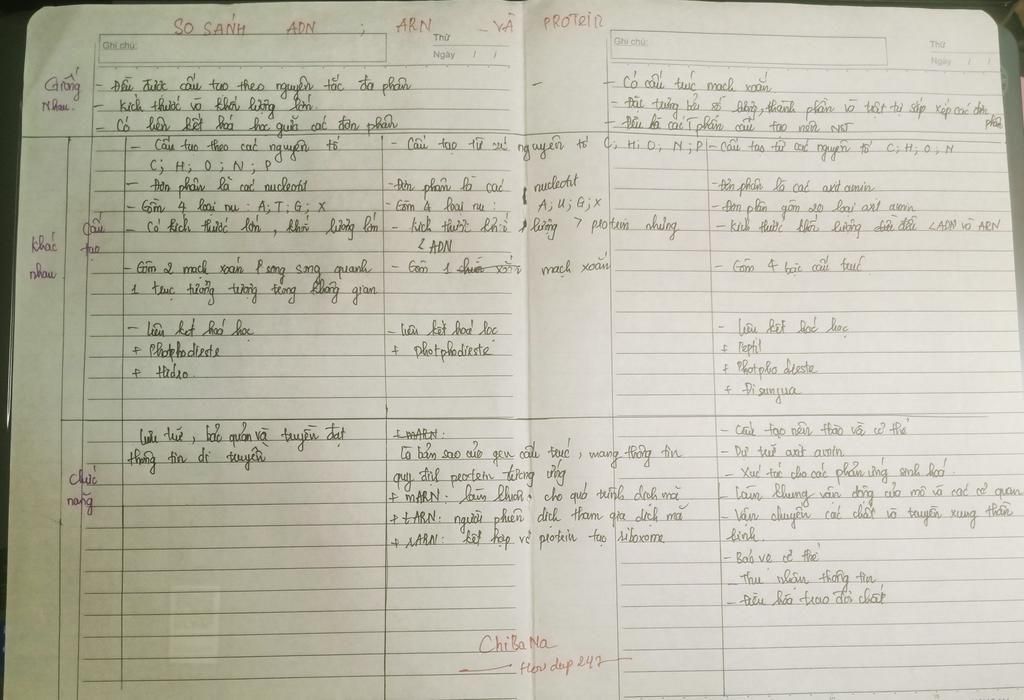 SO SÁNH ADN ; ARN VÀ PROTEIN
Ghi chú:
Thứ
Ngày / /
Ghi chú:
Thứ
Ngày / /
Giống nhau.
- Đều được cấu tạo theo nguyên tắc đa phân
- Kích thước và khối lượng lớn.
- Có liên kết hoá học giữa các đơn phân
- Có cấu trúc mạch xoắn.
- Đặc trưng bởi số lượng, thành phần và trật tự sắp xếp các đơn phân
- Đều là các T phần cấu tạo nên NST
Khác nhau
Cấu tạo
- Cấu tạo theo các nguyên tố
C; H; O; N; P
- Đơn phân là các nucleotit
- Gồm 4 loại nu: A; T; G; X
- Có kích thước lớn, khối lượng lớn
- Gồm 2 mạch xoắn song song quanh
1 trục tưởng tượng trong không gian
- Liên kết hoá học
+ Photphodieste
+ Hidro.
- Cấu tạo từ các nguyên tố C; H; O; N; P
- Đơn phân là các nucleotit
- Gồm 4 loại nu: A; U; G; X
- kích thước khối lượng > protein nhưng
< ADN
- Gồm 1 mạch xoắn
- Liên kết hoá học
+ photphodieste
- Cấu tạo từ các nguyên tố C; H; O, N
- Đơn phân là các axit amin
- Đơn phân gồm 20 loại axit amin
- kích thước khối lượng đều < ADN và ARN
- Gồm 4 bậc cấu trúc
- Liên kết hoá học
+ Peptit
+ Photpho dieste
+ Disunfua
Chức năng
Lưu trữ, bảo quản và truyền đạt
thông tin di truyền
+ mARN:
Là bản sao của gen cấu trúc, mang thông tin
quy định protein tương ứng
+ mARN: làm khuôn cho quá trình dịch mã
+ tARN: người phiên dịch tham gia dịch mã
+ rARN: kết hợp vs protein tạo riboxome
- Cấu tạo nên tế bào và cơ thể
- Dự trữ axit amin
- Xúc tác cho các phản ứng sinh hoá.
- Làm khung vận động của mô và các cơ quan
- Vận chuyển các chất và truyền xung thần
kinh.
- Bảo vệ cơ thể
- Thu nhận thông tin
- Điều hoà trao đổi chất
ChiBaNa
Hoidap247